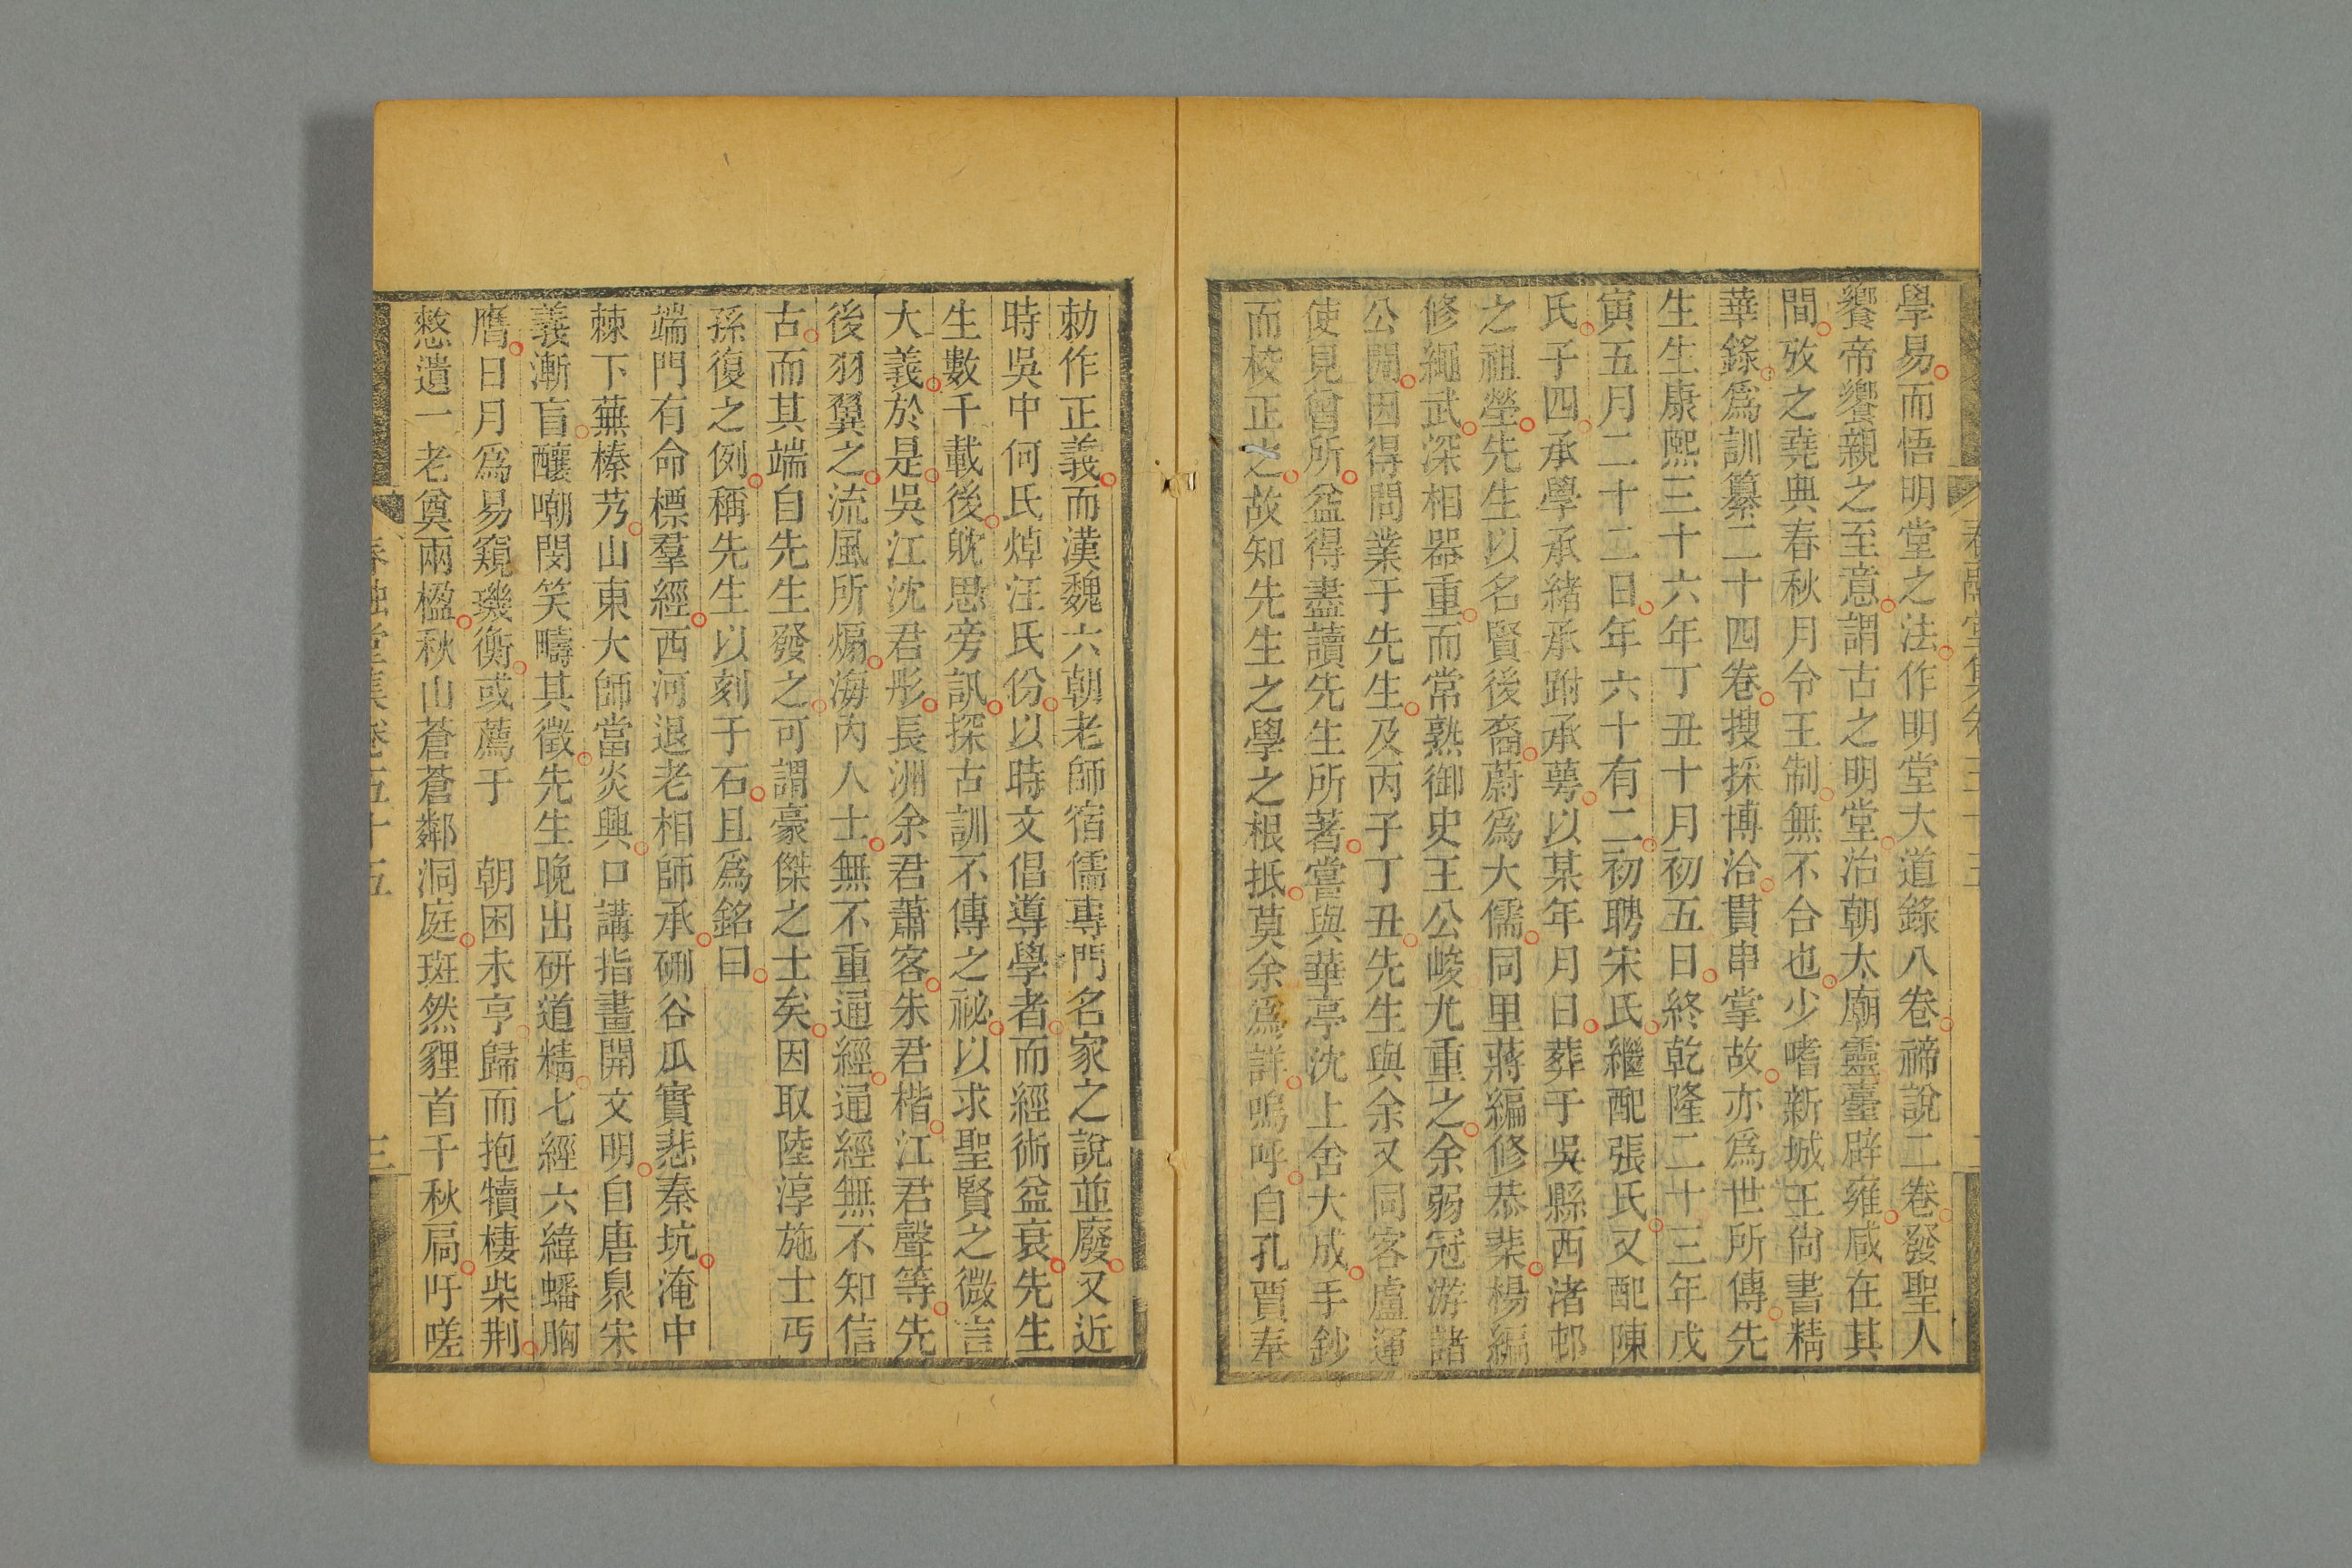 學易而悟明堂之法作明堂大道錄八卷禘說二卷發聖人
饗帝饗親之至意謂古之明堂治朝太廟靈臺辟雍咸在其
間攷之堯典春秋月令王制無不合也少嗜新城王尙書精
華錄爲訓纂二十四卷搜採博洽貫串掌故亦爲世所傳先
生生康熙三十六年丁丑十月初五日終乾隆二十三年戊
寅五月二十二日年六十有二初聘宋氏繼配張氏又配陳
氏子四承學承緖承跗承萼以某年月日葬于吳縣西渚邨
之祖塋先生以名賢後裔蔚爲大儒同里蔣編修恭棐楊編
修繩武深相器重而常熟御史王公峻尤重之余弱冠游諸
公間因得問業于先生及丙子丁丑先生與余又同客盧運
使見曾所益得盡讀先生所著嘗與華亭沈上舍大成手鈔
而校正之故知先生之學之根抵莫余爲詳嗚呼自孔賈奉
勅作正義而漢魏六朝老師宿儒專門名家之說並廢又近
時吳中何氏焯汪氏份以時文倡導學者而經術益衰先生
生數千載後眈思旁訊探古訓不傳之祕以求聖賢之微言
大義於是吳江沈君彤長洲余君蕭客朱君楷江君聲等先
後羽翼之流風所煽海內人士無不重通經通經無不知信
古而其端自先生發之可謂豪傑之士矣因取陸淳施士丐
孫復之例稱先生以刻于石且爲銘曰
端門有命標羣經西河退老相師承硎谷瓜實悲秦坑淹中
棘下蕪榛艿山東大師當炎興口講指畫開文明自唐臮宋
義漸盲釀嘲閔笑疇其徵先生晚出硏道精七經六緯蟠胸
膺日月爲易窺璣衡或薦于　朝困未亨歸而抱犢棲柴荆
憖遺一老奠兩楹秋山蒼蒼鄰洞庭斑然貍首千秋扃吁嗟
春融堂集卷五十五
三